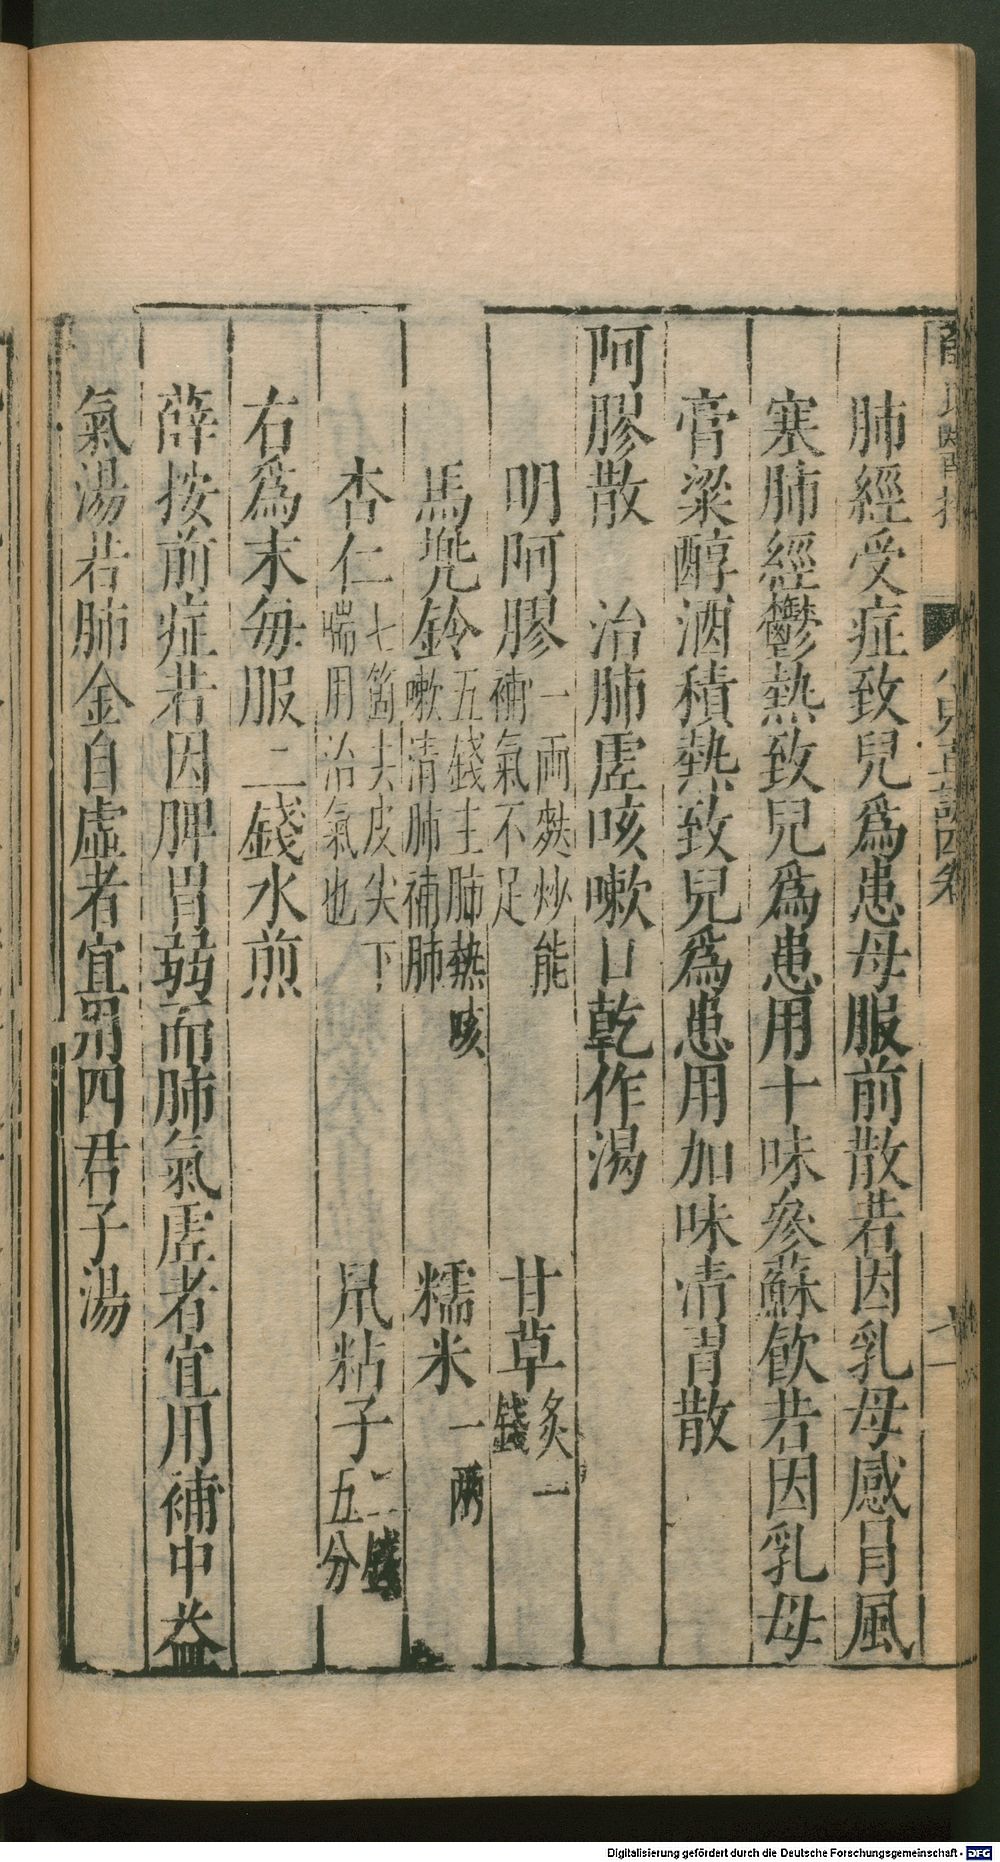 肺經受症致兒爲患母服前散若因乳母感冐風
塞肺經鬱熱致兒爲患用十味參蘇飲若因乳母
膏粱醇酒積熱致兒爲患用加味清胃散
阿膠散　治肺虛咳嗽口乾作渴
明阿膠一兩麩炒能補氣不足　甘草炙一錢
馬兠鈴五錢主肺熱咳嗽清肺補肺　糯米一兩
杏仁七箇去皮尖下喘用治氣也　鼠粘子二錢五分
右爲末每服二錢水煎
薛按前症若因脾胃弱而肺氣虛者宜用補中益
氣湯若肺金自虛者宜用四君子湯
Digitalisierung gefördert durch die Deutsche Forschungsgemeinschaft - DFG